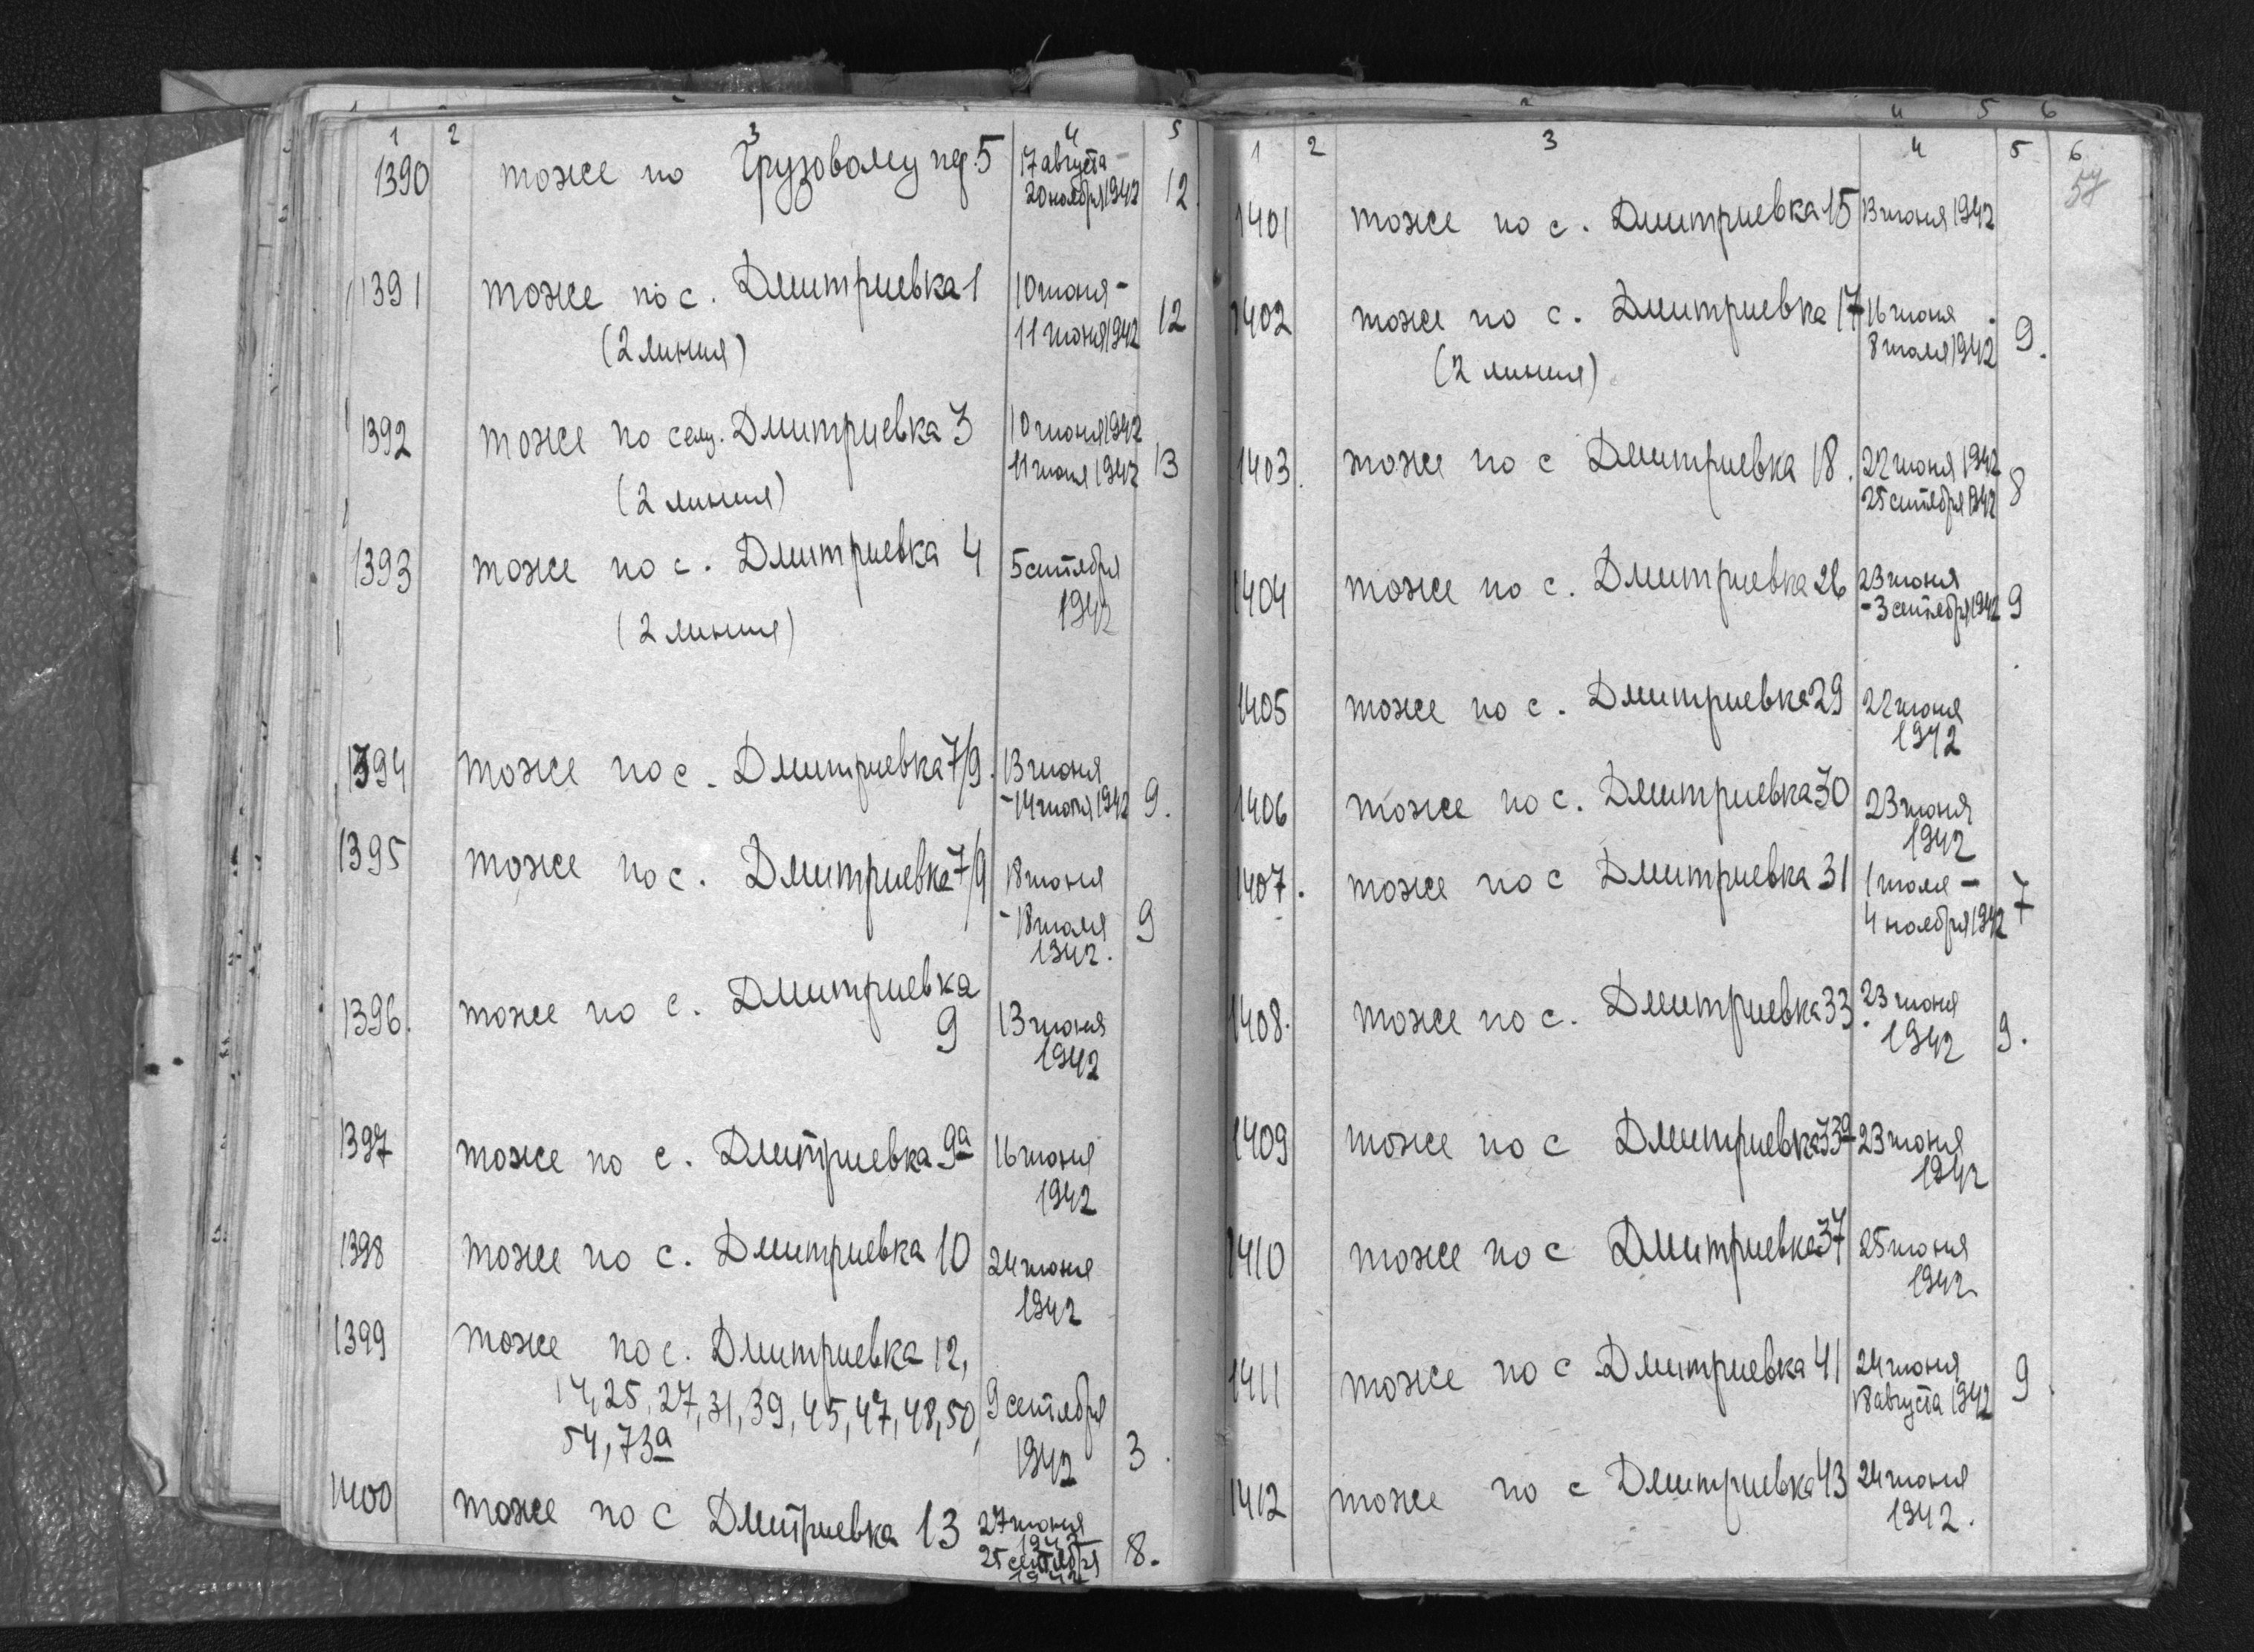 1 2 3 4 5
1390 тоже по Грузовому пер. 5 17 августа –
20 ноября 1942 12.
1391 тоже по с. Дмитриевка 1 10 июня –
(2 линия) 11 июня 1942 12
1392 тоже по селу. Дмитриевка 3 10 июня 1942
11 июня 1942 13
(2 линия)
1393 тоже по с. Дмитриевка 4 5 сентября
1942
(2 линия)
1394 тоже по с. Дмитриевка 7/9. 13 июня
– 14 июня 1942 9.
1395 тоже по с. Дмитриевка 7/9 18 июня
– 18 июля 9
1942.
1396. тоже по с. Дмитриевка
9 13 июня
1942
1397 тоже по с. Дмитриевка 9а 16 июня
1942
1398 тоже по с. Дмитриевка 10 24 июня
1942
1399 тоже по с. Дмитриевка 12,
17, 25, 27, 31, 39, 45, 47, 48, 50, 9 сентября
54, 73а 1942 3.
1400 тоже по с Дмитриевка 13 27 июня
1942
25 сентября 8.
1942
4 5 6
1 2 3 4 5 6
57
1401 тоже по с. Дмитриевка 15 13 июня 1942
1402 тоже по с. Дмитриевка 17 16 июня
8 июля 1942 9.
(2 линия)
1403. тоже по с Дмитриевка 18. 22 июня 1942
25 сентября 1942 8
1404 тоже по с. Дмитриевка 26 23 июня
– 3 сентября 1942 9
1405 тоже по с. Дмитриевка 29 22 июня
1942
1406 тоже по с. Дмитриевка 30 23 июня
1942
1407. тоже по с Дмитриевка 31 1 июля –
4 ноября 1942 7
1408. тоже по с. Дмитриевка 33 23 июня
1942 9.
1409 тоже по с Дмитриевка 33а 23 июня
1942
1410 тоже по с Дмитриевка 37 25 июня
1942
1411 тоже по с Дмитриевка 41 24 июня
18 августа 1942 9.
1412 тоже по с Дмитриевка 43 24 июня
1942.